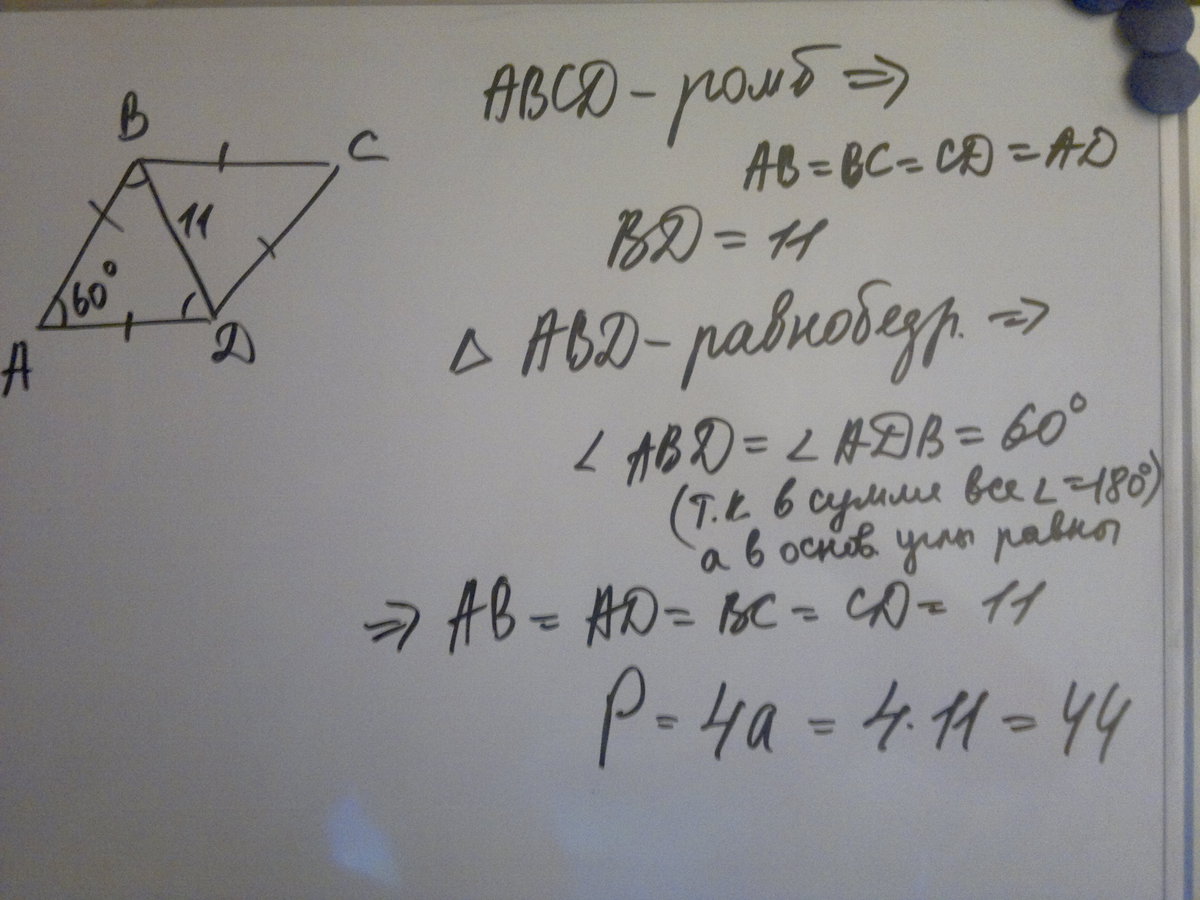 B
C
11
60°
A
D
ABCD - ромб ⇒
AB = BC = CD = AD
BD = 11
△ ABD - равнобедр. ⇒
∠ ABD = ∠ ADB = 60°
(т.к в сумме все ∠ = 180°)
а в основ. углы равны
⇒ AB = AD = BC = CD = 11
P = 4a = 4 · 11 = 44